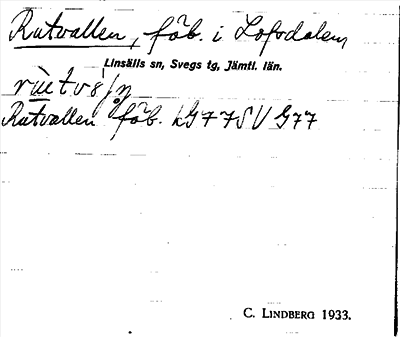 Rutvallen, fäb. i Lofsdalen,
Linsälls sn, Svegs tg, Jämtl. län.
Rutvallen fäb. LG77SVG77
C. LINDBERG 1933.